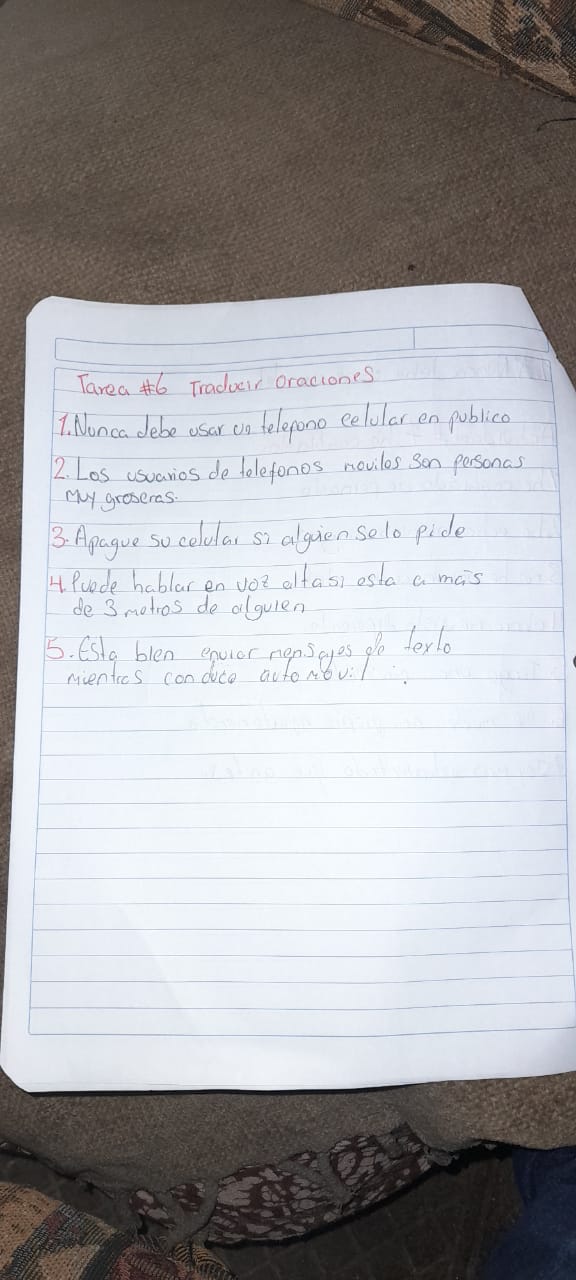 Tarea #6 Traducir Oraciones
1. Nunca debe usar un telefono celular en publico
2. Los usuarios de telefonos moviles son personas
Muy groseras.
3. Apague su celular si alguien se lo pide
4. Puede hablar en voz alta si esta a mas
de 3 metros de alguien
5. Esta bien enviar mensajes de texto
mientras conduce automovil.